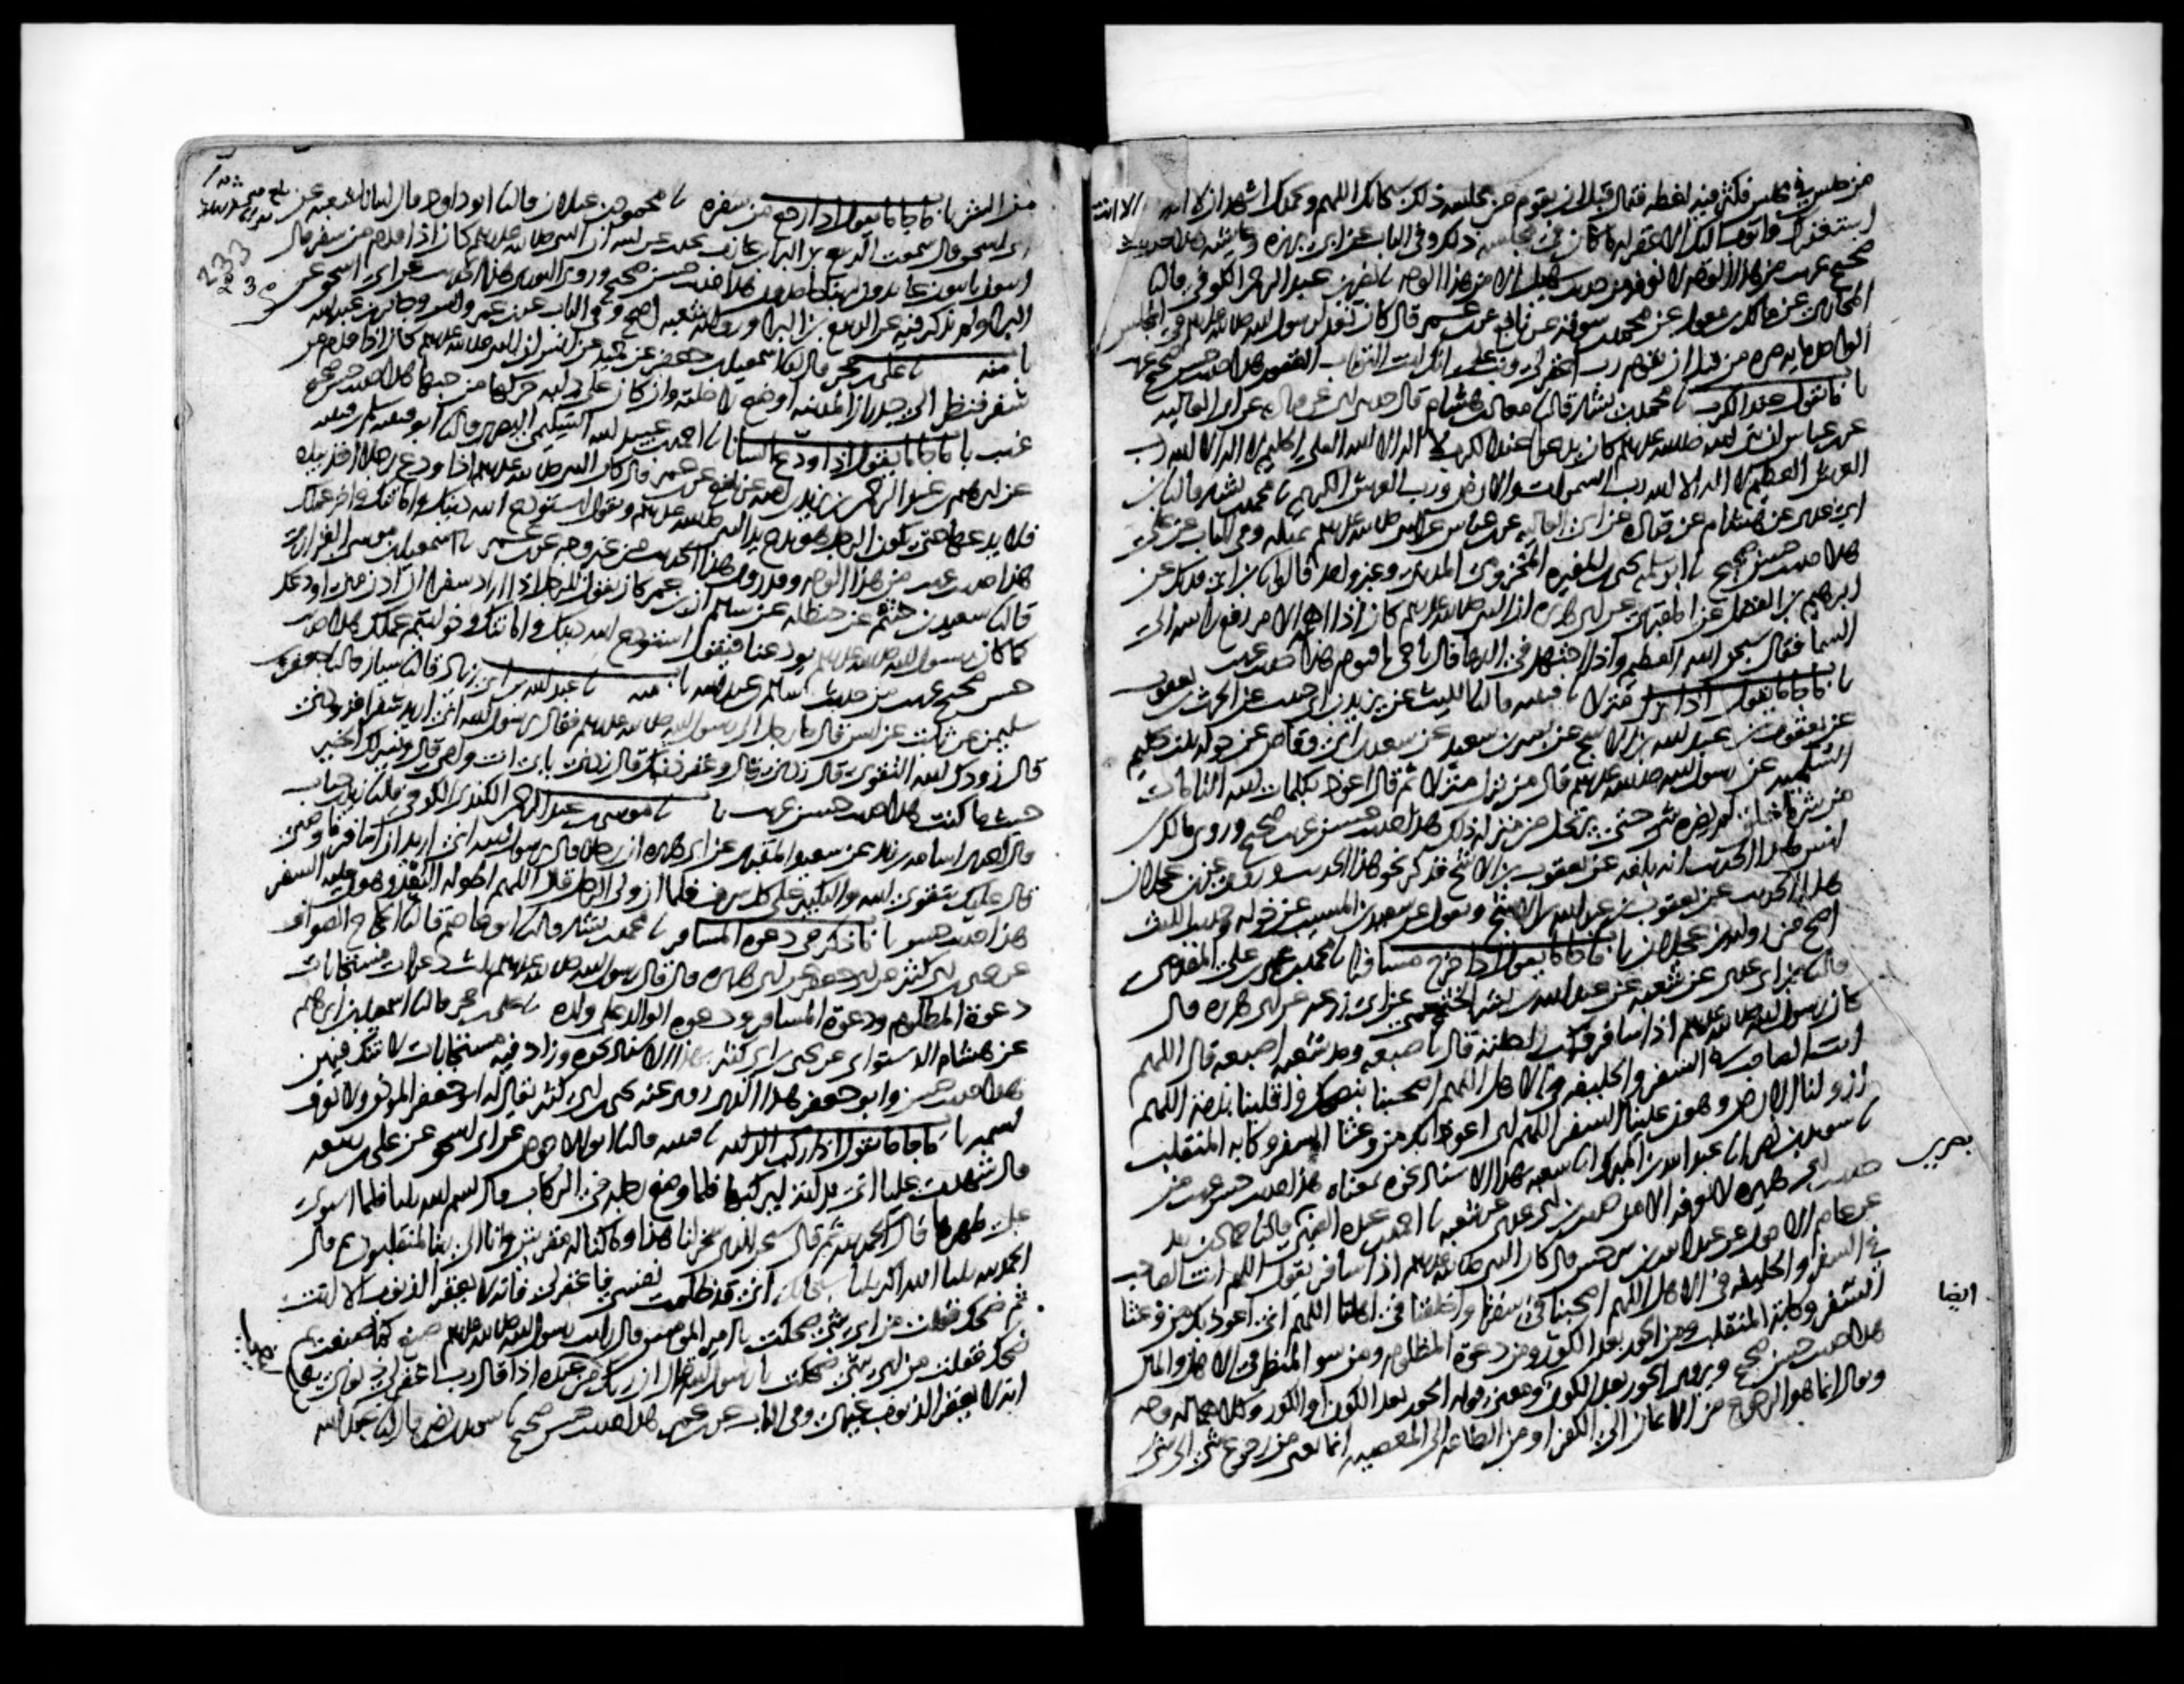 من جلس في مجلس فكثر فيه لغطه فقال قبل ان يقوم من مجلسه ذلك سبحانك اللهم وبحمدك اشهد ان لا اله الا انت
استغفرك واتوب اليك الا غفر له ما كان في مجلسه ذلك وفي الباب عن ابي برزه وعايشه هذا حديث
صحيح غريب من هذا الوجه لا نعرفه من حديث سهيل الا من هذا الوجه نا نصر بن عبد الرحمن الكوفي قال نا
المحاربي عن مالك بن مغول عن محمد بن سوقه عن نافع عن ابن عمر قال كان تعد لرسول الله صلى الله عليه وسلم في المجلس
الواحد مايه مره من قبل ان يقوم رب اغفر لي وتب علي انك انت التواب الغفور هذا حديث حسن صحيح غريب
باب ما يقول عند الكرب نا محمد بن بشار قال نا معاذ بن هشام قال حدثني ابي عن قتاده عن ابي العاليه
عن ابن عباس ان نبي الله صلى الله عليه وسلم كان يدعو عند الكرب لا اله الا الله العلي الحليم لا اله الا الله رب
العرش العظيم لا اله الا الله رب السموات والارض ورب العرش الكريم نا محمد بن بشار قال نا ابن
ابي عدي عن هشام عن قتاده عن ابي العاليه عن ابن عباس عن النبي صلى الله عليه وسلم بمثله وفي الباب عن علي
هذا حديث حسن صحيح نا ابو سلمه يحيى بن المغيره المخزومي المديني وغير واحد قالوا نا ابن ابي فديك عن
ابرهيم بن الفضل عن المقبري عن ابي هريره ان النبي صلى الله عليه وسلم كان اذا اهمه الامر رفع راسه الى
السما فقال سبحن الله العظيم واذا اجتهد في الدعا قال يا حي يا قيوم هذا حديث غريب
باب ما جا ما يقول اذا نزل منزلا نا قتيبه قال نا الليث عن يزيد بن ابي حبيب عن الحرث بن يعقوب
عن يعقوب بن عبد الله بن الاشج عن بسر بن سعيد عن سعد بن ابي وقاص عن خوله بنت حكيم
السلميه عن رسول الله صلى الله عليه وسلم قال من نزل منزلا ثم قال اعوذ بكلمات الله التامات
من شر ما خلق لم يضره شي حتى يرتحل من منزله ذلك هذا حديث حسن غريب صحيح وروى مالك بن
انس هذا الحديث انه بلغه عن يعقوب بن الاشج فذكر نحو هذا الحديث وروي عن ابن عجلان
هذا الحديث عن يعقوب بن عبد الله بن الاشج ويقول عن سعيد بن المسيب عن خوله وحديث الليث
اصح من رواية ابن عجلان باب ما جا ما يقول اذا خرج مسافرا نا محمد بن عمر بن علي المقدمي
قال نا ابن ابي عدي عن شعبه عن عبد الله بن بشر الخثعمي عن ابي زرعه عن ابي هريره قال
كان رسول الله صلى الله عليه وسلم اذا سافر فركب راحلته قال باصبعه ومد شعبه اصبعه قال اللهم
انت الصاحب في السفر والخليفه في الاهل اللهم اصحبنا بنصحك واقلبنا بذمه اللهم
ازو لنا الارض وهون علينا السفر اللهم اني اعوذ بك من وعثا السفر وكابه المنقلب
نا سويد بن نصر نا عبد الله بن المبرك نا شعبه بهذا الاسناد نحوه بمعناه هذا حديث حسن غريب من
حديث ابي هريره لا نعرفه الا من حديث ابن ابي عدي عن شعبه نا احمد بن عبده الضبي قال نا حماد بن زيد
عن عاصم الاحول عن عبد الله بن سرجس قال كان النبي صلى الله عليه وسلم اذا سافر يقول اللهم انت الصاحب
في السفر والخليفه في الاهل اللهم اصحبنا في سفرنا واخلفنا في اهلنا اللهم اني اعوذ بك من وعثا
السفر وكابة المنقلب ومن الحور بعد الكور ومن دعوة المظلوم ومن سو المنظر في الاهل والمال
هذا حديث حسن صحيح ويروى الحور بعد الكون ومعنى قوله الحور بعد الكون او الكور وكلاهما له وجه
ويقال انما هو الرجوع من الايمان الى الكفر او من الطاعه الى المعصيه انما يعني من رجوع شي الى شي
ايضا
من الشر باب ما جا ما يقول اذا رجع من سفره نا محمود بن غيلان قال نا ابو داود قال انبانا شعبه عن
ابي اسحق قال سمعت الربيع بن البرا بن عازب يحدث عن ابيه ان النبي صلى الله عليه وسلم كان اذا قدم من سفر قال
ايبون تايبون عابدون لربنا حامدون هذا حديث حسن صحيح وروى الثوري هذا الحديث عن ابي اسحق عن
البرا ولم يذكر فيه عن الربيع بن البرا ورواية شعبه اصح وفي الباب عن ابن عمر وانس وجابر بن عبد الله
باب منه نا علي بن حجر قال نا اسمعيل بن جعفر عن حميد عن انس ان النبي صلى الله عليه وسلم كان اذا قدم من
سفر فنظر الى جدران المدينه اوضع راحلته وان كان على دابه حركها من حبها هذا حديث حسن صحيح
غريب باب ما جا ما يقول اذا ودع انسانا نا احمد بن عبيد الله السليمي البصري قال نا ابو قتيبه سلم بن قتيبه
عن ابرهيم بن عبد الرحمن بن يزيد بن اميه عن نافع عن ابن عمر قال كان النبي صلى الله عليه وسلم اذا ودع رجلا اخذ بيده
فلا يدعها حتى يكون الرجل هو يدع يد النبي صلى الله عليه وسلم ويقول استودع الله دينك وامانتك واخر عملك
هذا حديث غريب من هذا الوجه وقد روي هذا الحديث من غير وجه عن ابن عمر نا اسمعيل بن موسى الفزاري
قال نا سعيد بن خثيم عن حنظله عن سالم ان ابن عمر كان يقول للرجل اذا اراد سفرا ان ادن مني اودعك
كما كان رسول الله صلى الله عليه وسلم يودعنا فيقول استودع الله دينك وامانتك وخواتيم عملك هذا حديث
حسن صحيح غريب من حديث سالم بن عبد الله باب منه نا عبد الله بن ابي زياد قال نا سيار قال نا جعفر بن
سليمن عن ثابت عن انس قال جا رجل الى رسول الله صلى الله عليه وسلم فقال يرسول الله اني اريد سفرا فزودني
قال زودك الله التقوى قال زدني قال وغفر ذنبك قال زدني بابي انت وامي قال ويسر لك الخير
حيث ما كنت هذا حديث حسن غريب باب نا موسى بن عبد الرحمن الكندي الكوفي قال نا زيد بن حباب
قال اخبرني اسامه بن زيد عن سعيد المقبري عن ابي هريره ان رجلا قال يرسول الله اني اريد ان اسافر فاوصني
قال عليك بتقوى الله والتكبير على كل شرف فلما ان ولى الرجل قال اللهم اطو له البعد وهون عليه السفر
هذا حديث حسن باب ما ذكر في دعوة المسافر نا محمد بن بشار قال نا ابو عاصم قال نا الحجاج الصواف
عن يحيى بن ابي كثير عن ابي جعفر عن ابي هريره قال قال رسول الله صلى الله عليه وسلم ثلث دعوات مستجابات
دعوة المظلوم ودعوة المسافر ودعوة الوالد على ولده نا علي بن حجر قال نا اسمعيل بن ابرهيم
عن هشام الدستوائي عن يحيى بن ابي كثير بهذا الاسناد نحوه وزاد فيه مستجابات لا شك فيهن
هذا حديث حسن وابو جعفر هذا الذي روى عنه يحيى بن ابي كثير يقال له ابو جعفر الموذن ولا نعرف
اسمه باب ما جا ما يقول اذا ركب الدابه نا قتيبه قال نا ابو الاحوص عن ابي اسحق عن علي بن ربيعه
قال شهدت عليا اتي بدابة ليركبها فلما وضع رجله في الركاب قال بسم الله ثلثا فلما استوى
على ظهرها قال الحمد لله ثم قال سبحن الذي سخر لنا هذا وما كنا له مقرنين وانا الى ربنا لمنقلبون ثم قال
الحمد لله ثلثا الله اكبر ثلثا سبحانك اني قد ظلمت نفسي فاغفر لي فانه لا يغفر الذنوب الا انت
ثم ضحك فقلت من اي شي ضحكت يا امير المومنين قال رايت رسول الله صلى الله عليه وسلم صنع كما صنعت ثم
ضحك فقلت من اي شي ضحكت يا رسول الله قال ان ربك ليعجب من عبده اذا قال رب اغفر لي ذنوبي
انه لا يغفر الذنوب غيرك وفي الباب عن ابن عمر هذا حديث حسن صحيح نا سويد بن نصر قال نا عبد الله
233